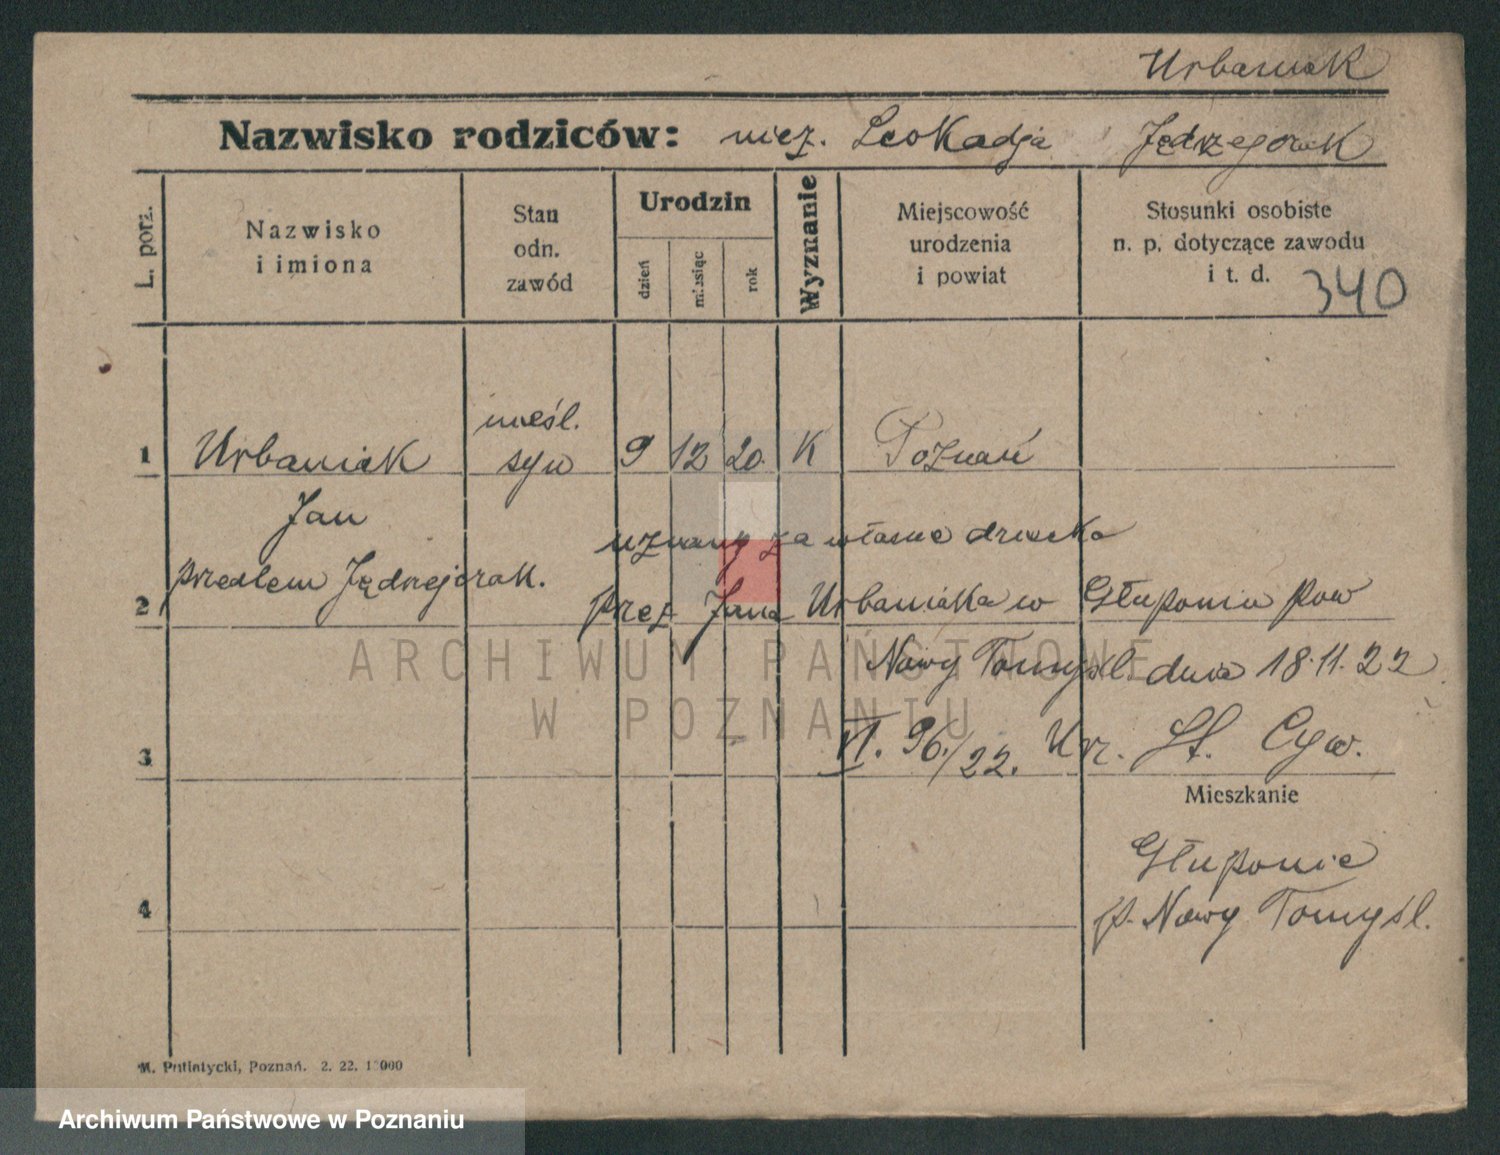 Urbaniak
Nazwisko rodziców: niez. Leokadja Jędrzegorak
L. porz.
Nazwisko
i imiona
Stan
odn.
zawód
Urodzin
dzień
miesiąc
rok
Wyznanie
Miejscowość
urodzenia
i powiat
Stosunki osobiste
n. p. dotyczące zawodu
i t. d.
340
1 Urbaniak nieśl. syn 9 12 20. K Poznań
Jan
przedtem Jędrzejorak.
uznany za własne dziecko
2 przez Jana Urbaniaka w Głuponiu pow
Nowy Tomyśl. dnia 18.11.22
3 VI. 96./22. Urz. St. Cyw.
Mieszkanie
Głuponie
4 p. Nowy Tomyśl.
M. Putiatycki, Poznań. 2. 22. 1 000
ARCHIWUM PAŃSTWOWE
W POZNANIU
Archiwum Państwowe w Poznaniu